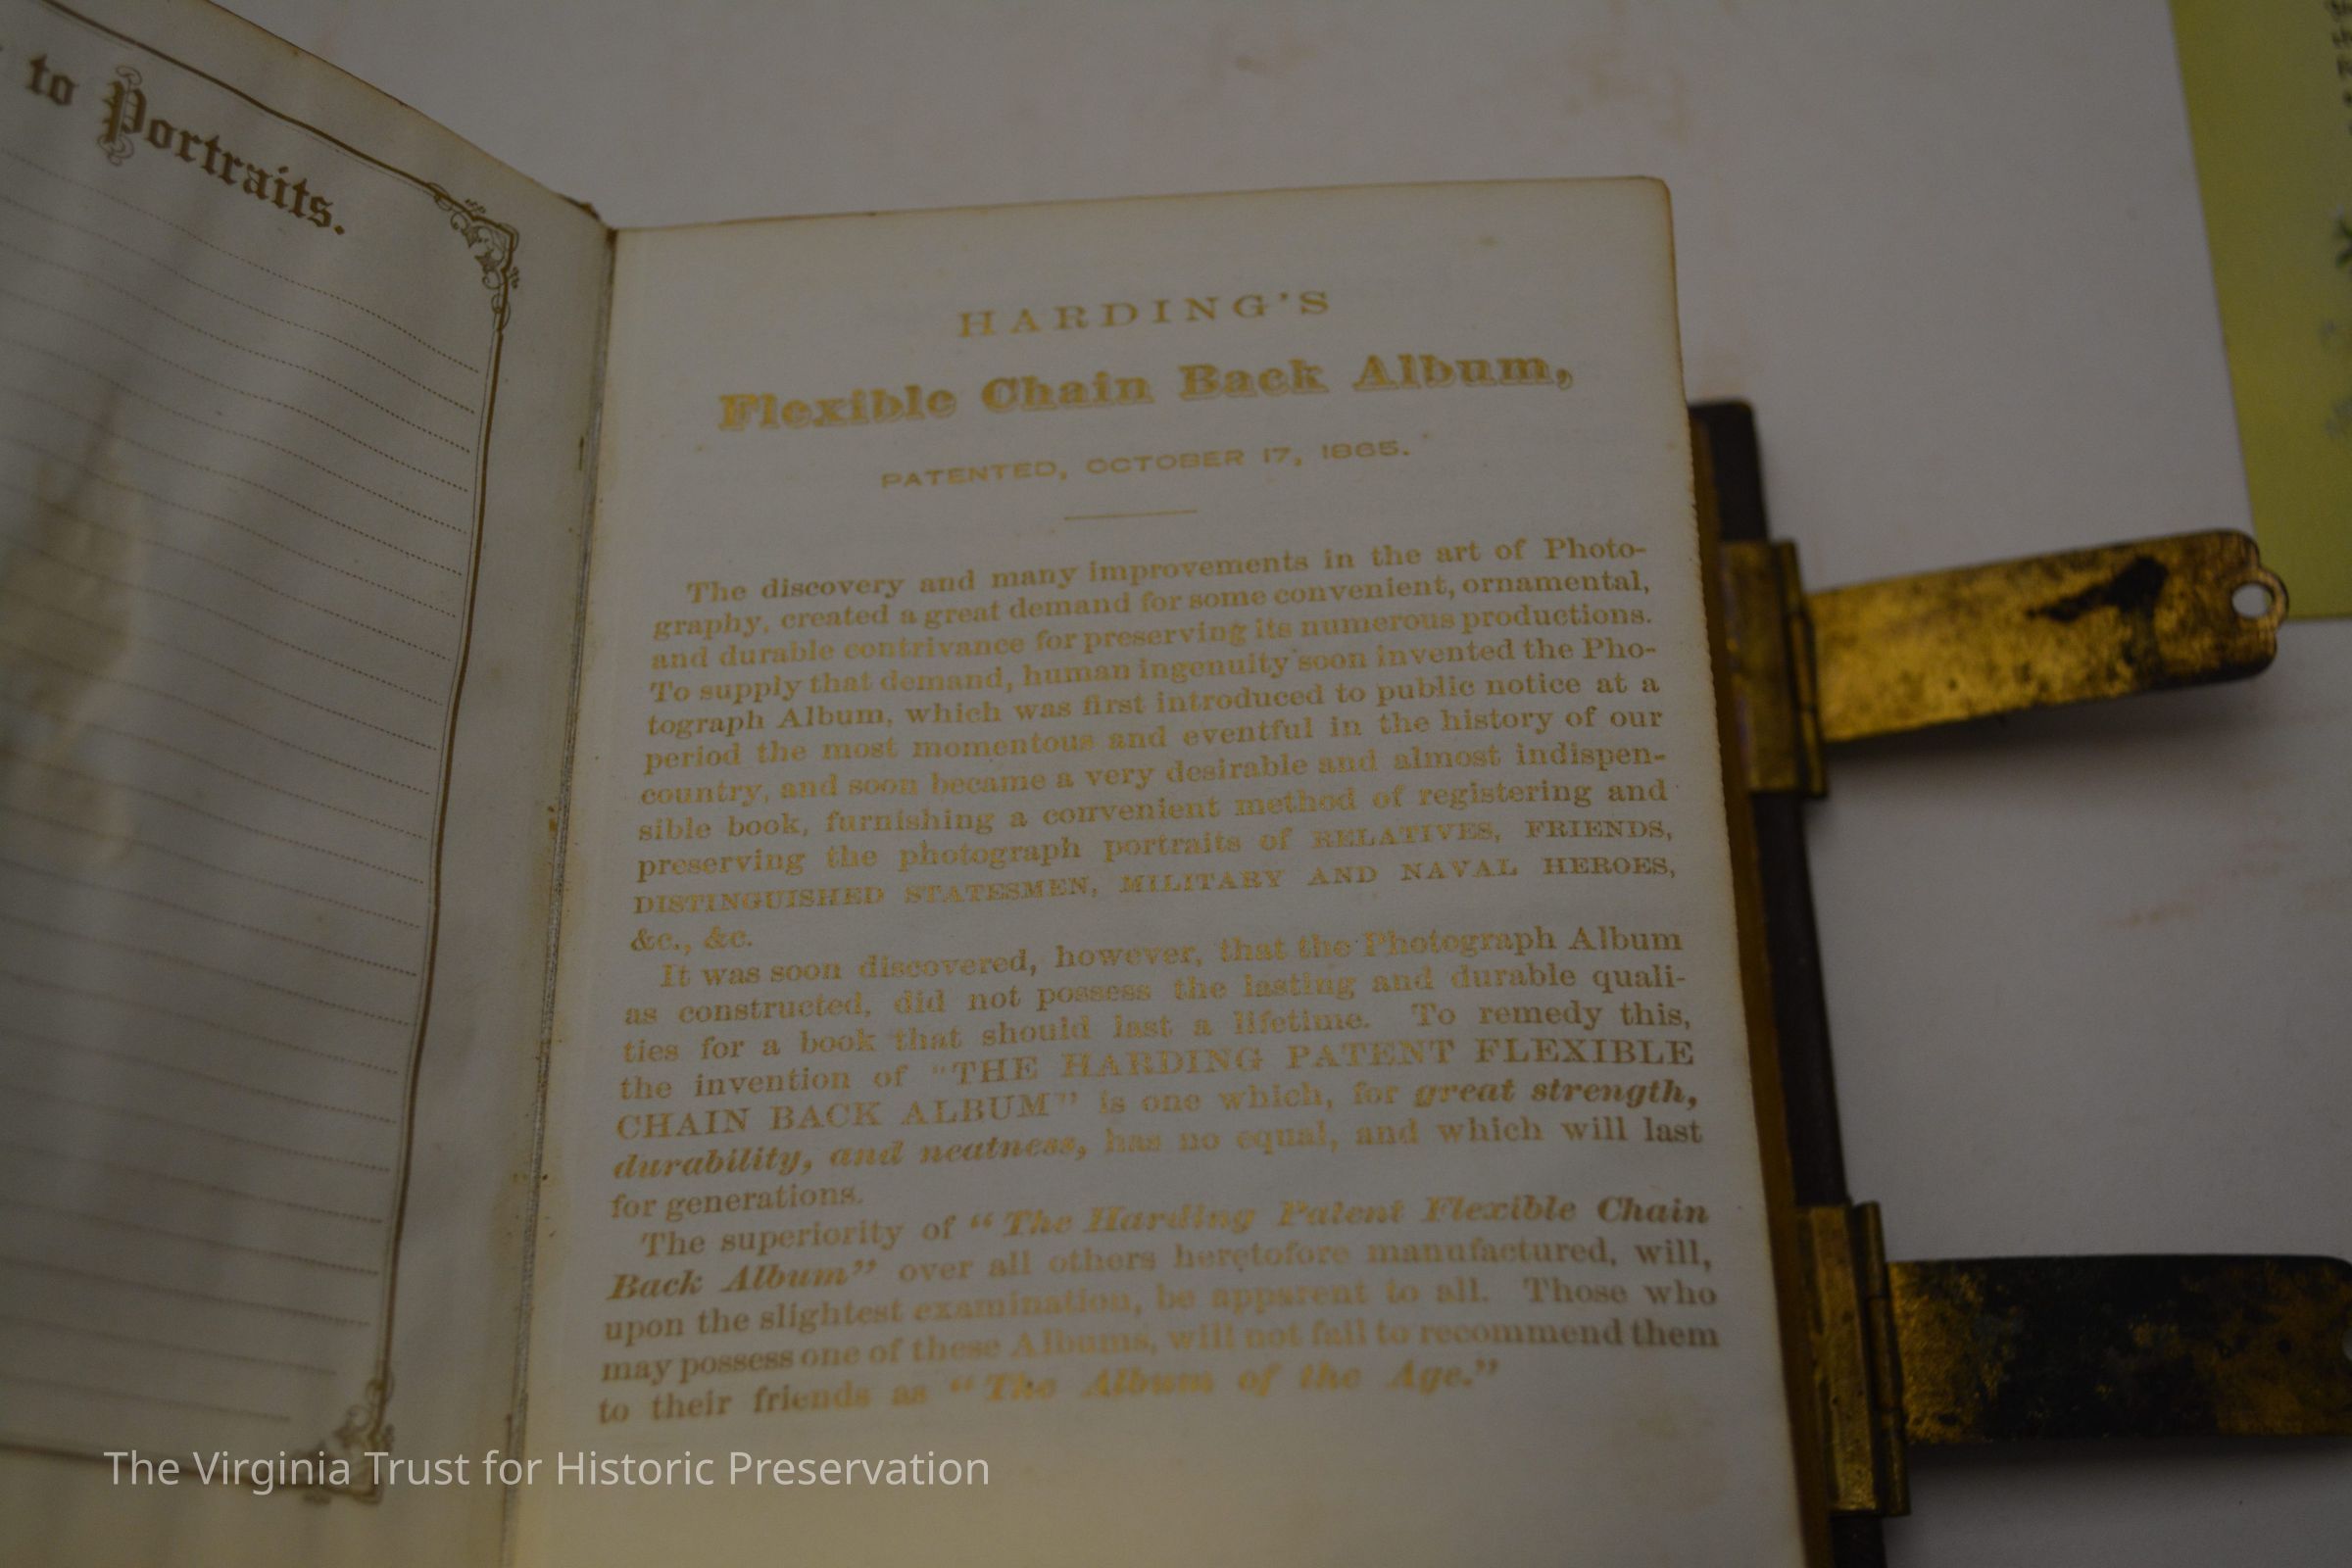 to Portraits.
HARDING'S
Flexible Chain Back Album,
PATENTED, OCTOBER 17, 1865.
The discovery and many improvements in the art of Photo-
graphy, created a great demand for some convenient, ornamental,
and durable contrivance for preserving its numerous productions.
To supply that demand, human ingenuity soon invented the Pho-
tograph Album, which was first introduced to public notice at a
period the most momentous and eventful in the history of our
country, and soon became a very desirable and almost indispen-
sible book, furnishing a convenient method of registering and
preserving the photograph portraits of RELATIVES, FRIENDS,
DISTINGUISHED STATESMEN, MILITARY AND NAVAL HEROES,
&c., &c.
It was soon discovered, however, that the Photograph Album
as constructed, did not possess the lasting and durable quali-
ties for a book that should last a lifetime. To remedy this,
the invention of "THE HARDING PATENT FLEXIBLE
CHAIN BACK ALBUM" is one which, for great strength,
durability, and neatness, has no equal, and which will last
for generations.
The superiority of "The Harding Patent Flexible Chain
Back Album" over all others heretofore manufactured, will,
upon the slightest examination, be apparent to all. Those who
may possess one of these Albums, will not fail to recommend them
to their friends as "The Album of the Age."
The Virginia Trust for Historic Preservation